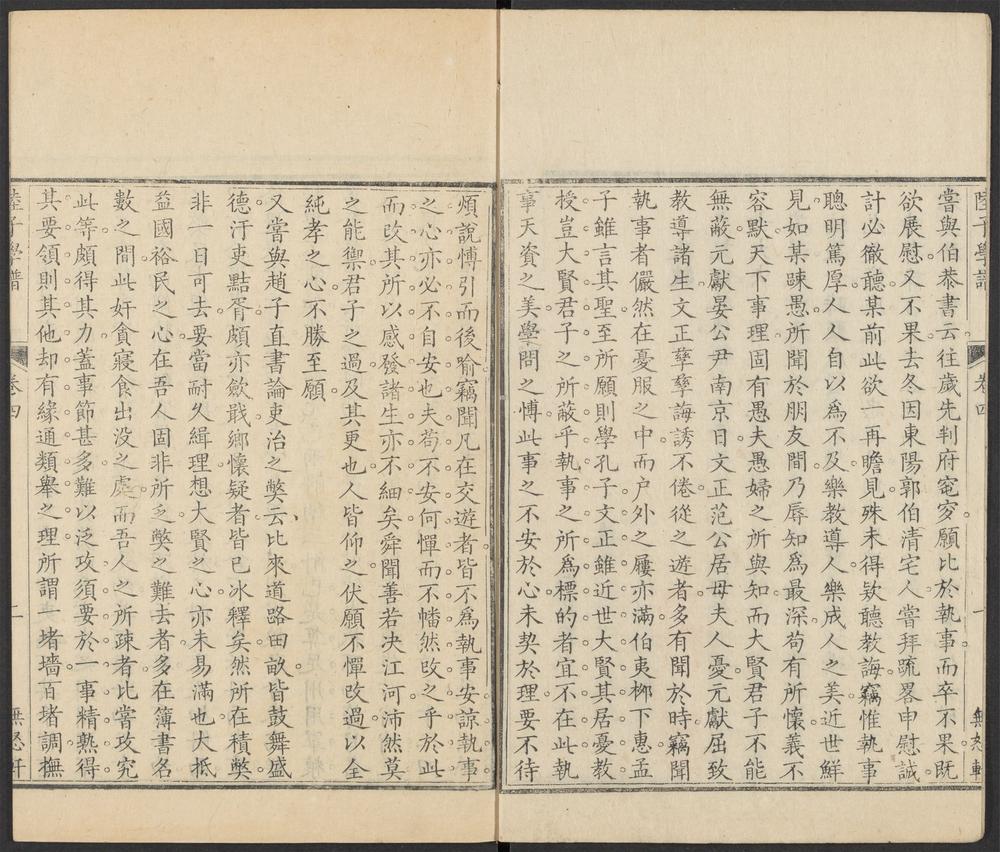 陸子學譜
卷四
一
無怒軒
嘗與伯恭書云往歲先判府窀穸願比於執事而卒不果既
欲展慰又不果去冬因東陽郭伯清宅人嘗拜疏畧申慰誠
計必徹聽某前此欲一再瞻見殊未得欵聽教誨竊惟執事
聰明篤厚人人自以爲不及樂教導人樂成人之美近世鮮
見如某踈愚所聞於朋友間乃辱知爲最深苟有所懷義不
容默天下事理固有愚夫愚婦之所與知而大賢君子不能
無蔽元獻晏公尹南京日文正范公居母夫人憂元獻屈致
教導諸生文正孳孳誨誘不倦從之遊者多有聞於時竊聞
執事者儼然在憂服之中而户外之屨亦滿伯夷柳下惠孟
子雖言其聖至所願則學孔子文正雖近世大賢其居憂教
授豈大賢君子之所蔽乎執事之所爲標的者宜不在此執
事天資之美學問之愽此事之不安於心未契於理要不待
煩說愽引而後喻竊聞凡在交遊者皆不爲執事安諒執事
之心亦必不自安也夫苟不安何憚而不幡然改之乎於此
而改其所以感發諸生亦不細矣舜聞善若决江河沛然莫
之能禦君子之過及其更也人皆仰之伏願不憚改過以全
純孝之心不勝至願
又嘗與趙子直書論吏治之獘云比來道路田畝皆鼓舞盛
德汙吏黠胥頗亦歛戢鄉懷疑者皆已冰釋矣然所在積獘
非一日可去要當耐久緝理想大賢之心亦未易滿也大抵
益國裕民之心在吾人固非所乏獘之難去者多在簿書名
數之間此奸貪寢食出没之處而吾人之所疎者比嘗攻究
此等頗得其力蓋事節甚多難以泛攻須要於一事精熟得
其要領則其他却有緣通類舉之理所謂一堵墻百堵調橅
陸子學譜
卷四
二
無怒軒